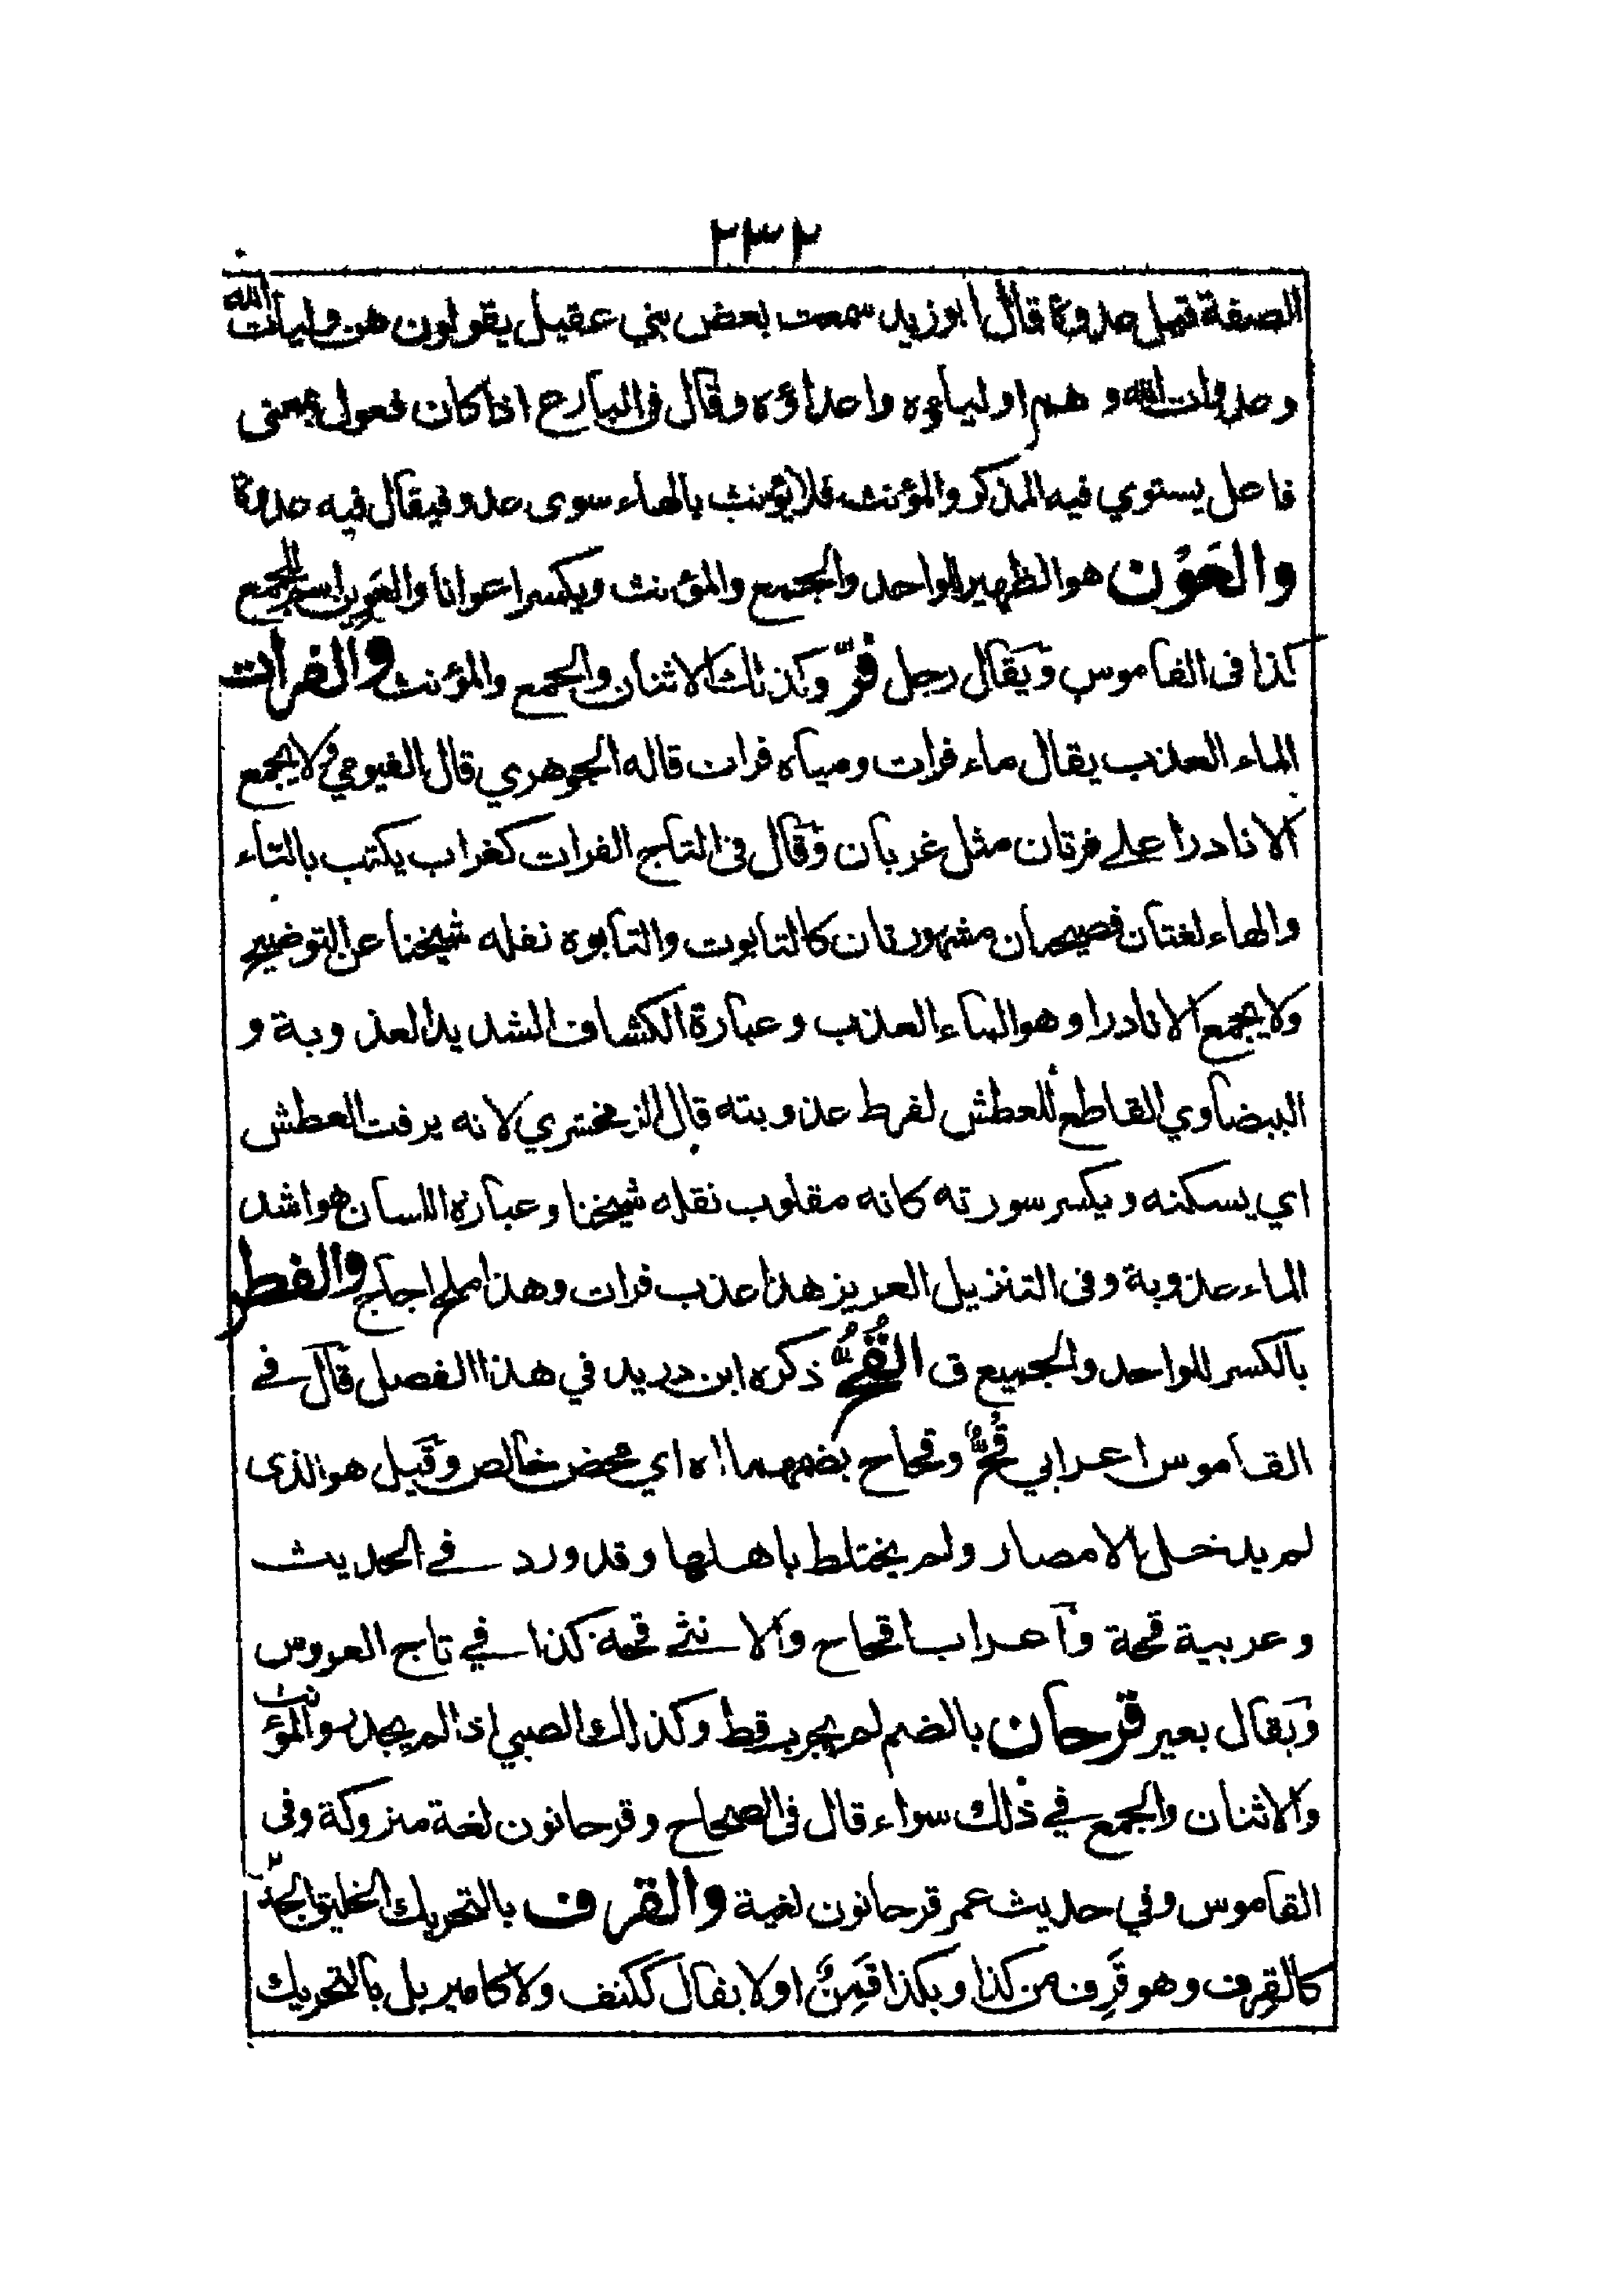 ٢٣٢
الصفة قيل عدوة قال ابو زيد سمعت بعض بني عقيل يقولون هن وليات الله
وعدوات الله و هم اولياؤه واعداؤه وقال فى البارع اذا كان فعول بمعنى
فاعل يستوي فيه المذكر والمؤنث فلا يؤنث بالهاء سوى عدو فيقال فيه عدوة
والعَوْن هو الظهير للواحد والجمع والمؤنث ويكسر اعوانا والعَوِين اسم للجمع
كذا فى القاموس ويقال رجل فرّ وكذلك الاثنان والجمع والمؤنث والفرات
الماء العذب يقال ماء فرات ومياه فرات قاله الجوهري قال الفيومي ولا يجمع
الا نادرا على فرتان مثل غربان وقال فى التاج الفرات كغراب يكتب بالتاء
والهاء لغتان فصيحتان مشهورتان كالتابوت والتابوه نقله شيخنا عن التوضيح
ولا يجمع الا نادرا وهو الماء العذب وعبارة الكشاف الشديد العذوبة و
البيضاوي القاطع للعطش لفرط عذوبته قال الزمخشري لانه يرفت العطش
اي يسكنه ويكسر سورته كانه مقلوب نقله شيخنا وعبارة اللسان هو اشد
الماء عذوبة وفى التنزيل العزيز هذا عذب فرات وهذا ملح اجاج والفطر
بالكسر للواحد والجميع ق القُحُّ ذكره ابن دريد في هذا الفصل قال في
القاموس اعرابي قُحٌّ وقحاح بضمهما اه اي محض خالص وقيل هو الذى
لم يدخل الامصار ولم يختلط باهلها وقد ورد في الحديث
وعربية قحة واعراب اقحاح والانثى قحة كذا في تاج العروس
ويقال بعير قرحان بالضم لم يجرب قط وكذلك الصبي اذا لم يجدر والمؤنث
والاثنان والجمع في ذلك سواء قال فى الصحاح وقرحانون لغة متروكة وفى
القاموس وفي حديث عمر قرحانون لغية والقرف بالتحريك الخليق الجدير
كالقرف وهو قَرِف من كذا وبكذا قَمِنٌ او لا يقال ككتف ولا كامير بل بالتحريك